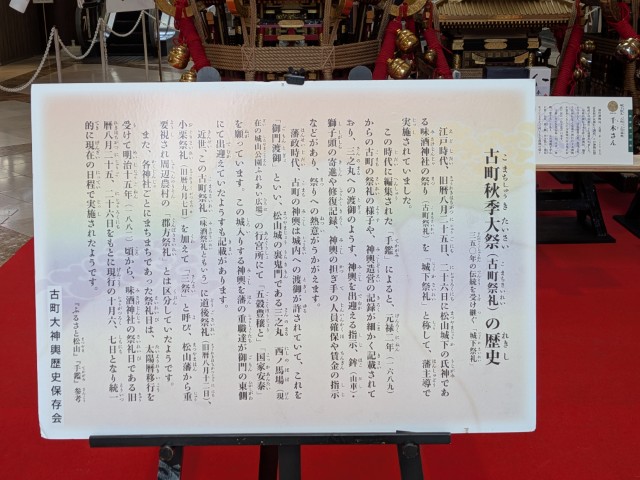 古町秋季大祭(古町祭礼)の歴史
三五〇年の伝統を受け継ぐ 城下祭礼
江戸時代、旧暦八月二十五日、二十六日に松山城下の氏神であ
る味酒神社の祭り(古町祭礼)を「城下祭礼」と称して、藩主導で
実施されていました。
この時代に編集された「手鑑」によると、「元禄二年(一六八九)
からの古町の祭礼の様子や、神輿造営の記録が細かく記載されて
おり、三之丸への渡御のようす、神輿を出迎える指示、鉾(山車・
獅子頭の寄進や修復記録、神輿の担ぎ手の人員確保や賃金の指示
などがあり、祭りへの熱意がうかがえます。
藩政時代、古町の神輿は城内への渡御が許されていて、これを
「御門渡御」といい、松山城の裏鬼門である三之丸 西ノ馬場(現
在の城山公園ふれあい広場)の行宮所にて「五穀豊穣と」「国家安泰」
を願っています。この城入りする神輿を藩の重職達が御門の東側
にて出迎えていたようすも記載があります。
近世、この古町祭礼(味酒祭礼ともいう)に道後祭礼(旧暦八月十三日)、
小栗祭礼(旧暦九月七日)を加えて「三祭」と呼び、松山藩から重
要視され周辺農村の「郡方祭礼」とは区分されていたようです。
また、各神社ごとにまちまちであった祭礼日が、太陽暦移行を
受けて明治十五年(一八八二)頃から、味酒神社の祭礼日である旧
暦八月二十五、二十六日をもとに現行の十月六、七日となり統一
的に現在の日程で実施されたようです。
「ふるさと松山」「手鑑」参考
古町大神輿歴史保存会
千木さん